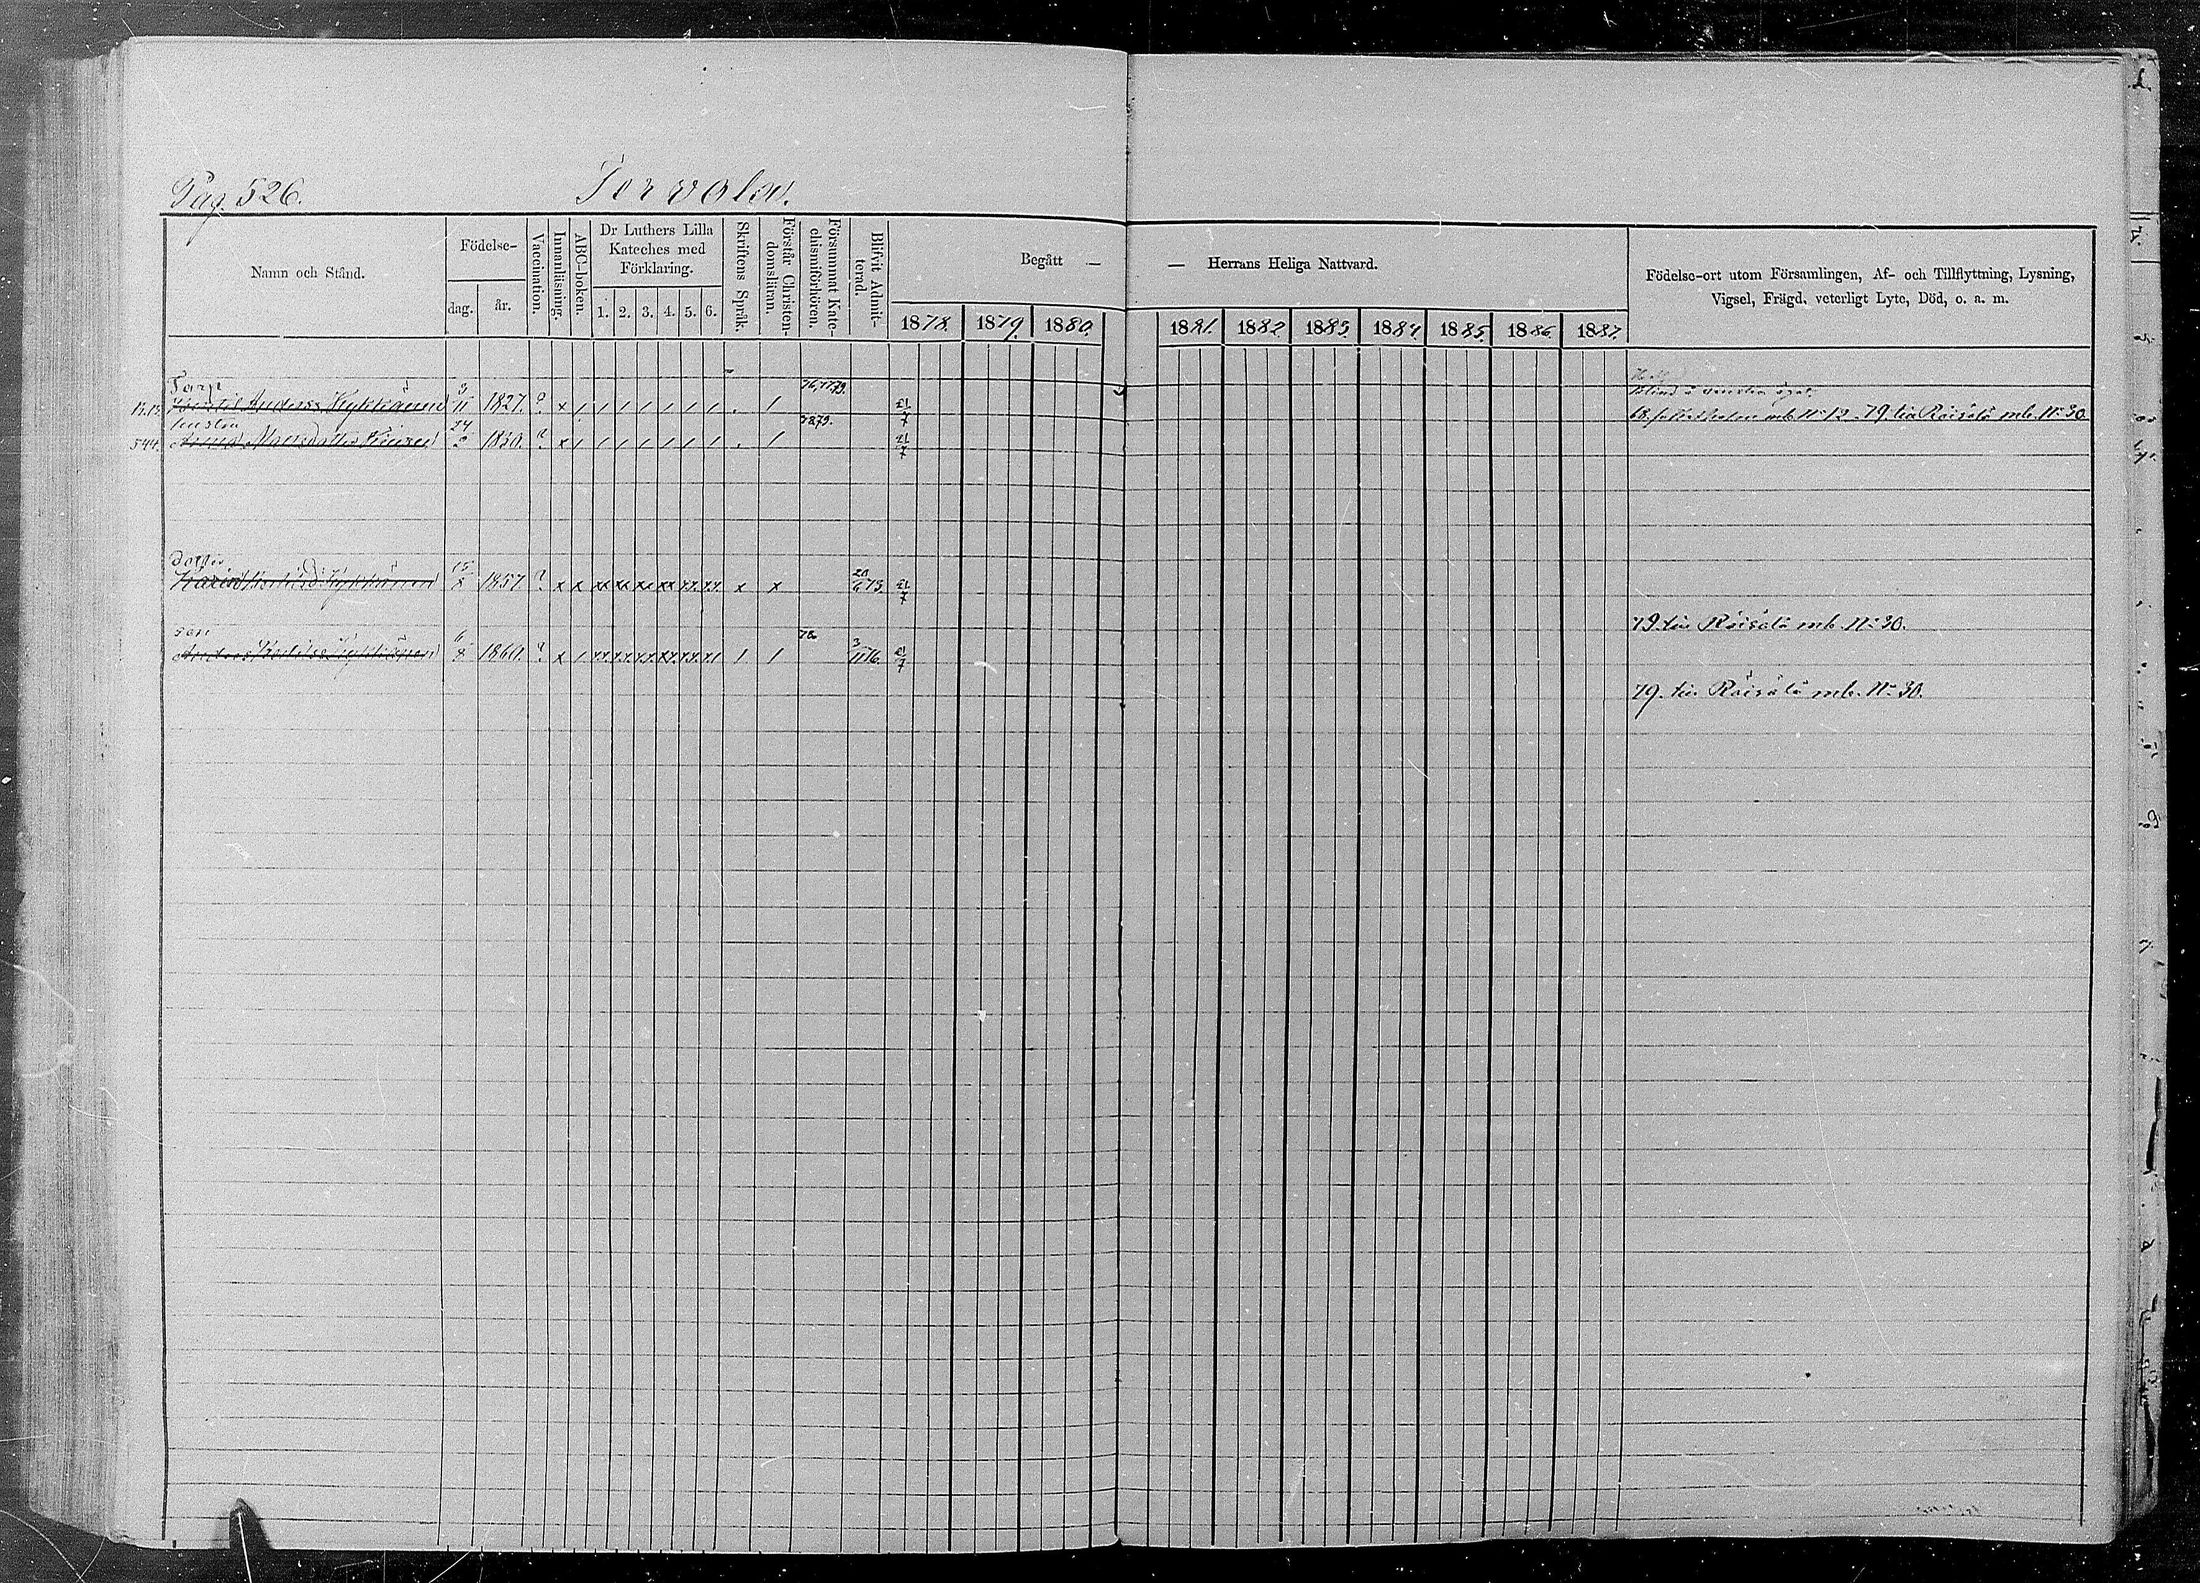 Pag. 526. Torvola.
Namn och Stånd.
Födelse-
dag. år.
Vaccination.
Innanläsning.
ABC-boken.
Dr Luthers Lilla
Kateches med
Förklaring.
1. 2. 3. 4. 5. 6.
Skriftens Språk.
Förstår Christen-
domsläran.
Försummat Kate-
chismiförhören.
Blifvit Admit-
terad.
Begått — — Herrans Heliga Nattvard.
1878. 1879. 1880. 1881. 1882. 1883. 1884. 1885. 1886. 1887.
Födelse-ort utom Församlingen, Af- och Tillflyttning, Lysning,
Vigsel, Frägd, veterligt Lyte, Död, o. a. m.
Torp
Anders Kykkänen 3/11 1827. ? x / / / / / / / . / 76.77.79. 21/7
mb. No 12 - 79. tia Räisälä mb. No 30
hustru
544. Anna Matsdotter 24 1830. ? x / / / / / / / . / 5879. 21/7
Dotter
15/8 1857. ? x x xx xx xx xx xx xx x x 20/6 73. 21/7
79. tia Räisälä mb. No 30.
son
Anders 6/8 1860. ? x / xx xx xx xx xx / / 78. 3/11 76. 21/7
79. tia Räisälä mb. No 30.